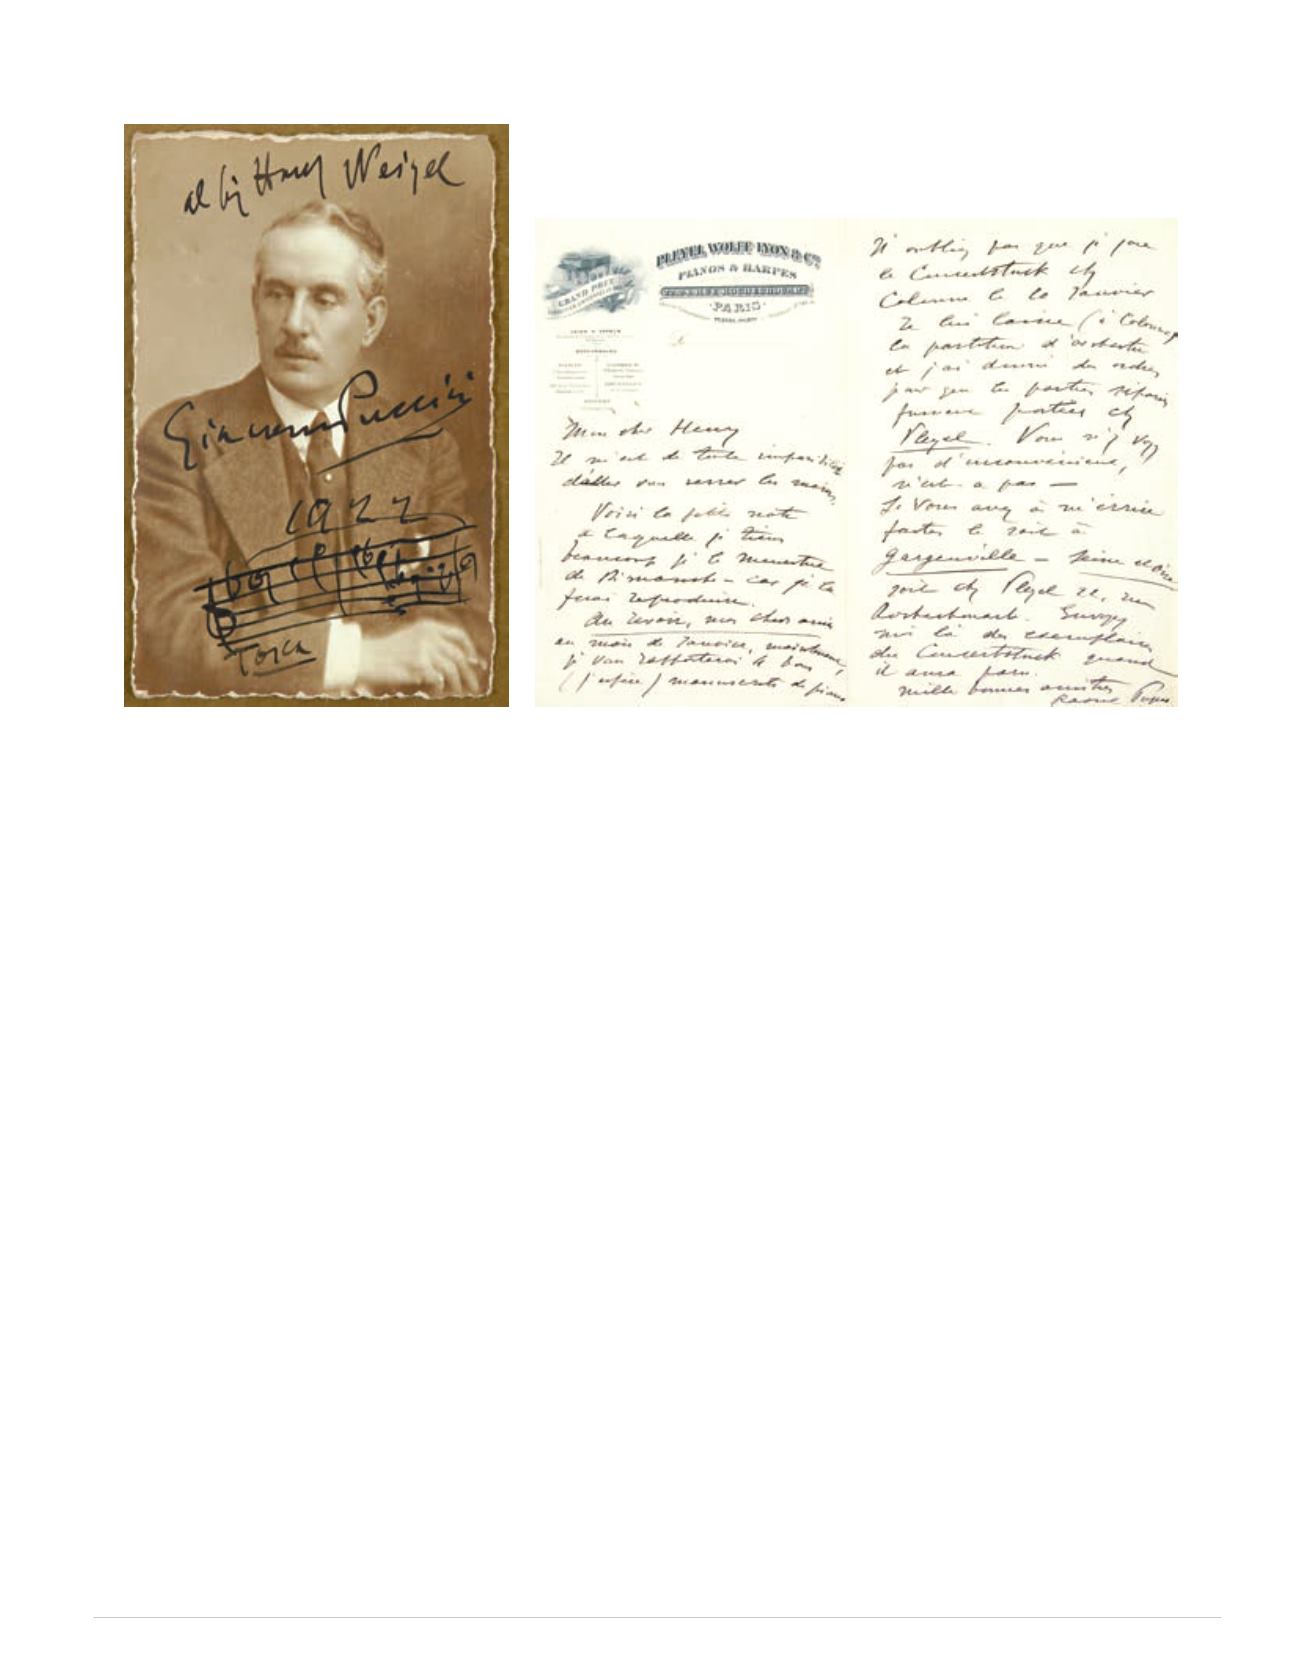 al Sig Weigel
Giacomo Puccini
1922
Tosca
PLEYEL WOLFF LYON & Cie
PIANOS & HARPES
PARIS
GRAND PRIX
Mon cher Henry
Il m'est de toute impossibilité
d'aller vous serrer les mains.
Voici la petite note
à laquelle je tiens
beaucoup
de Dimanche - car je la
ferai reproduire.
Au revoir, mes chers amis
au mois de Janvier, maintenant,
je vous rapporterai de bons
(j'espère) manuscrits de piano
N'oubliez pas que je joue
le Concertstuck chez
Colonne le 20 Janvier
Je lui laisse (à Colonne)
la partition d'orchestre
et j'ai donné des ordres
pour que les parties séparées
fussent portées chez
Pleyel. Vous n'y voyez
pas d'inconvénient,
n'est-ce pas —
Si vous avez à m'écrire
faites le soit à
Gargenville - Seine et Oise
soit chez Pleyel 22, rue
Rochechouart. Envoyez
moi là des exemplaires
du Concertstuck quand
il aura paru.
mille bonnes amitiés
Raoul Pugno